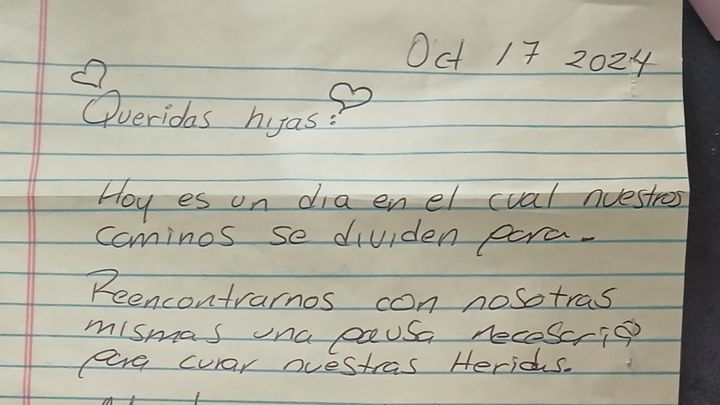 Oct 17 2024
Queridas hijas:
Hoy es un dia en el cual nuestros
caminos se dividen para-
Reencontrarnos con nosotras
mismas una pausa necesaria
para curar nuestras Heridas.